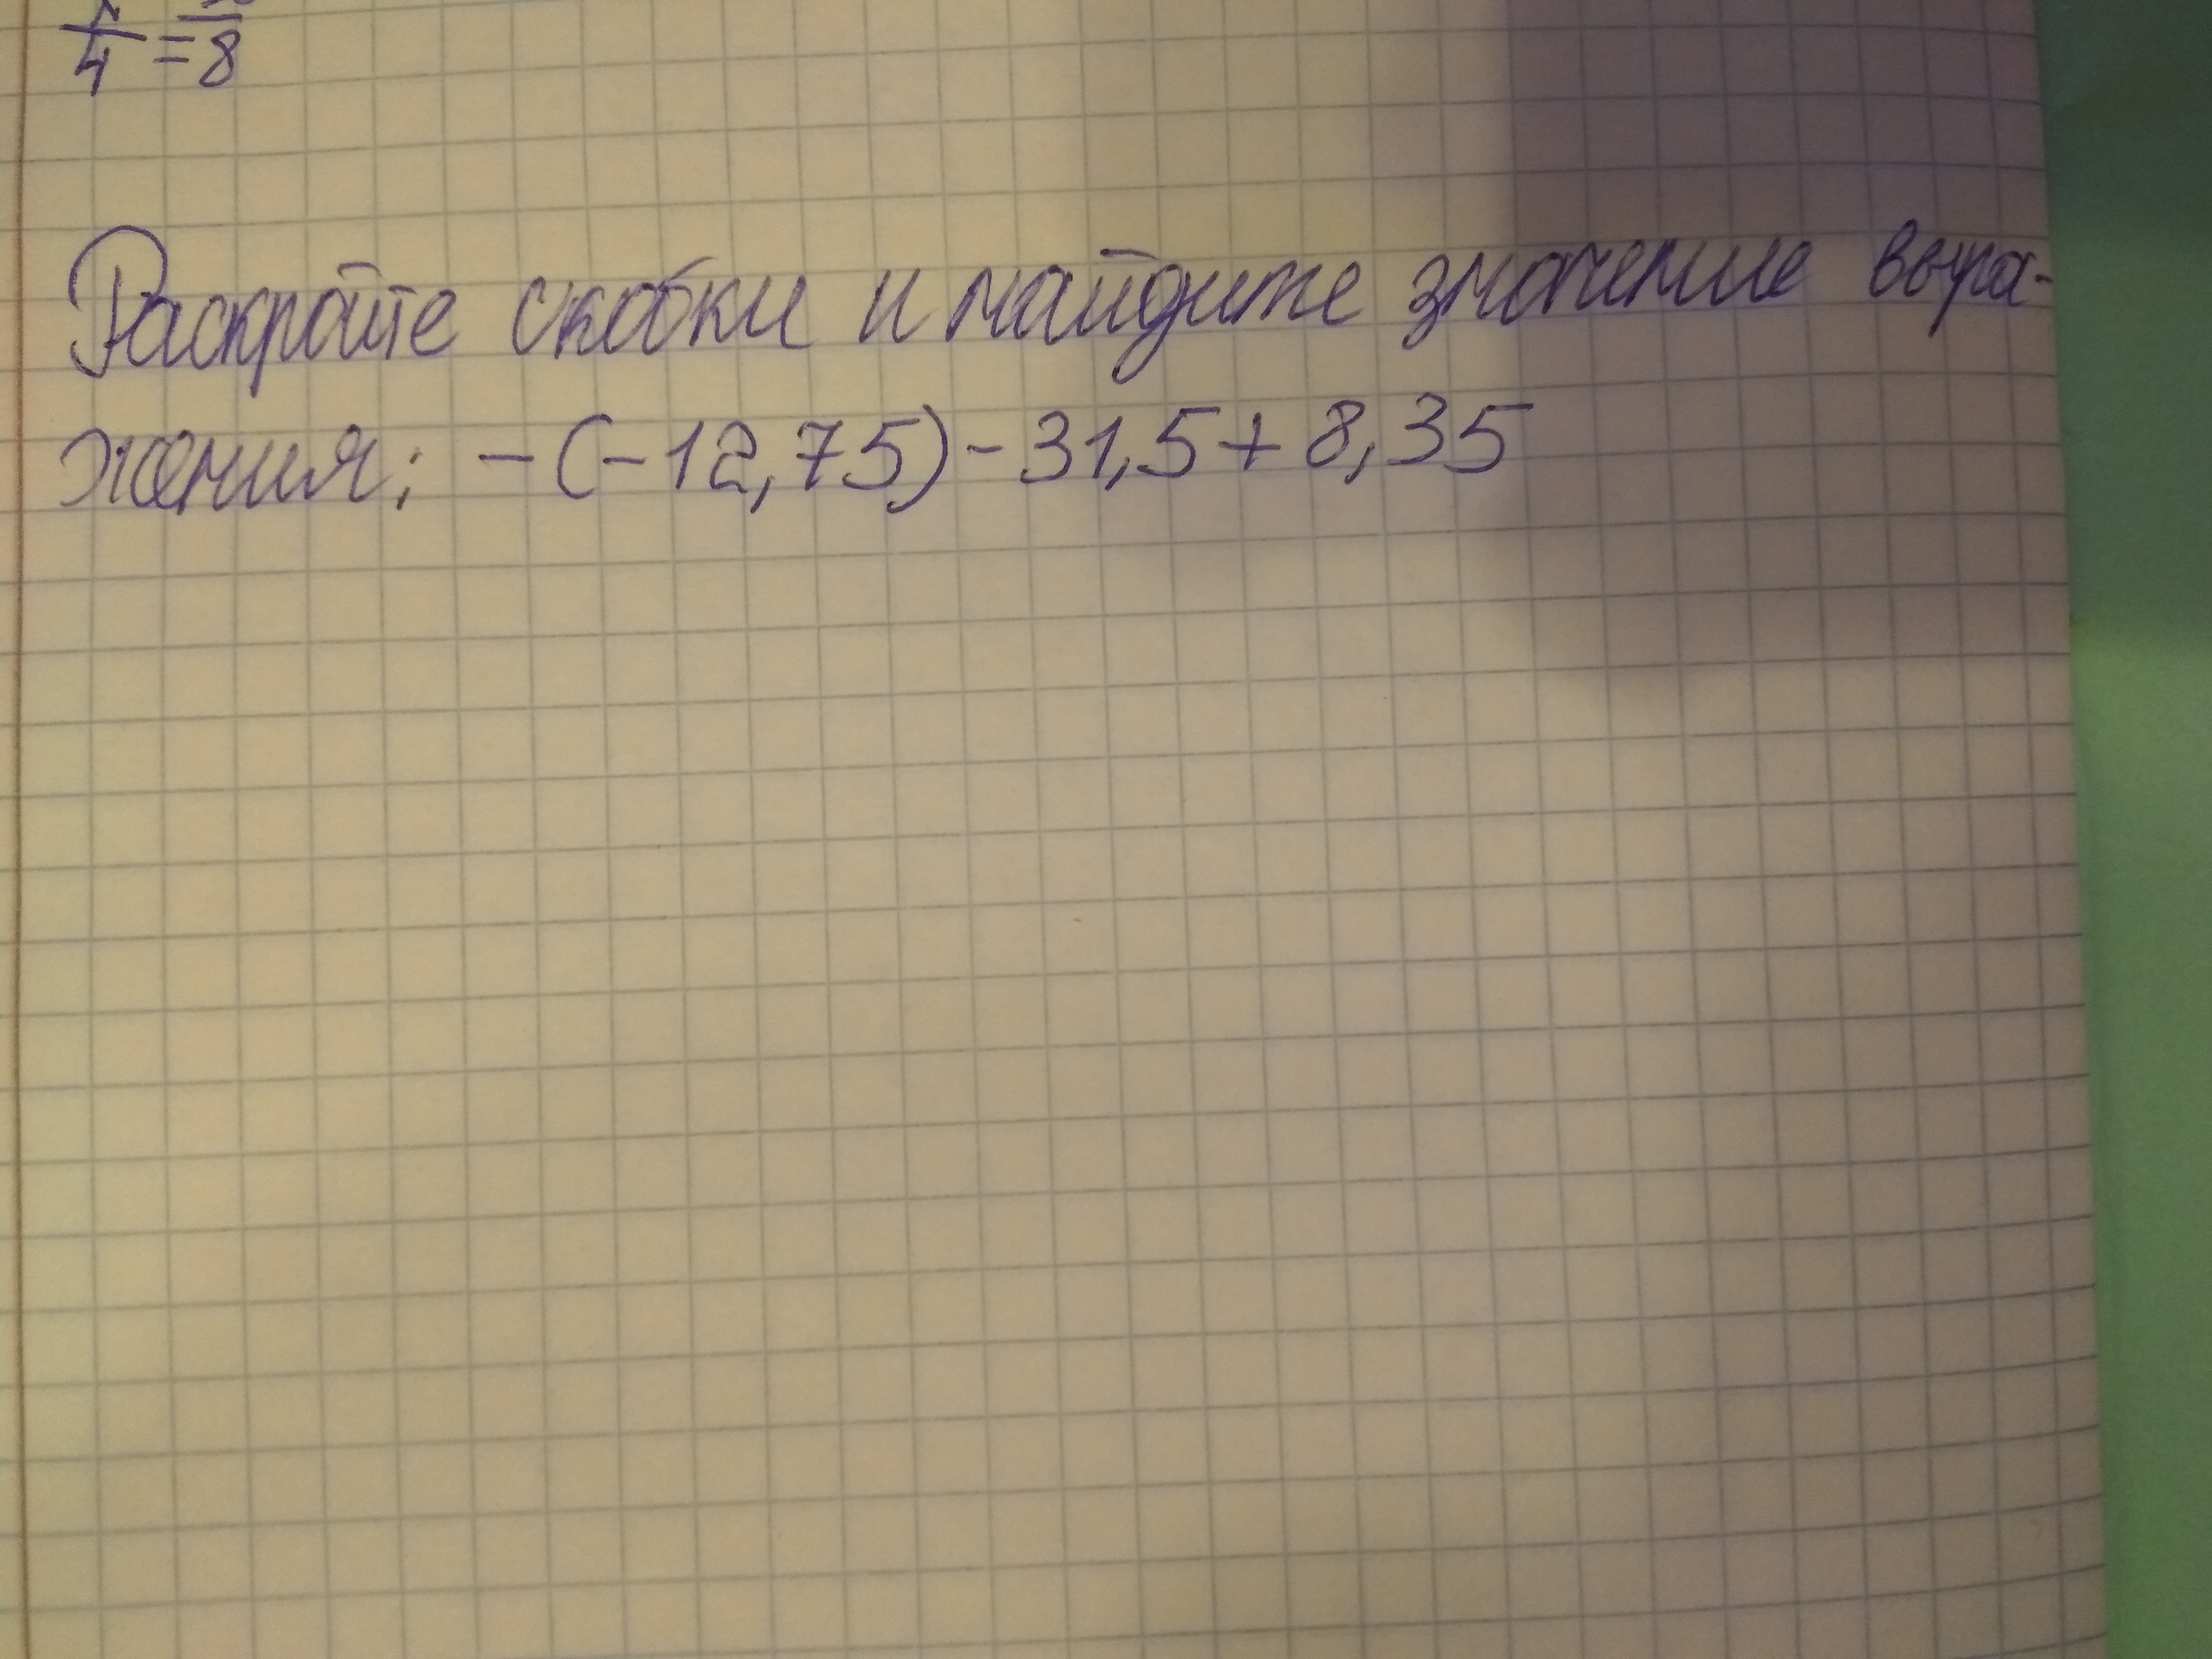 4 = 8
Раскройте скобки и найдите значение выра-
жения: -(-12,75)-31,5+8,35